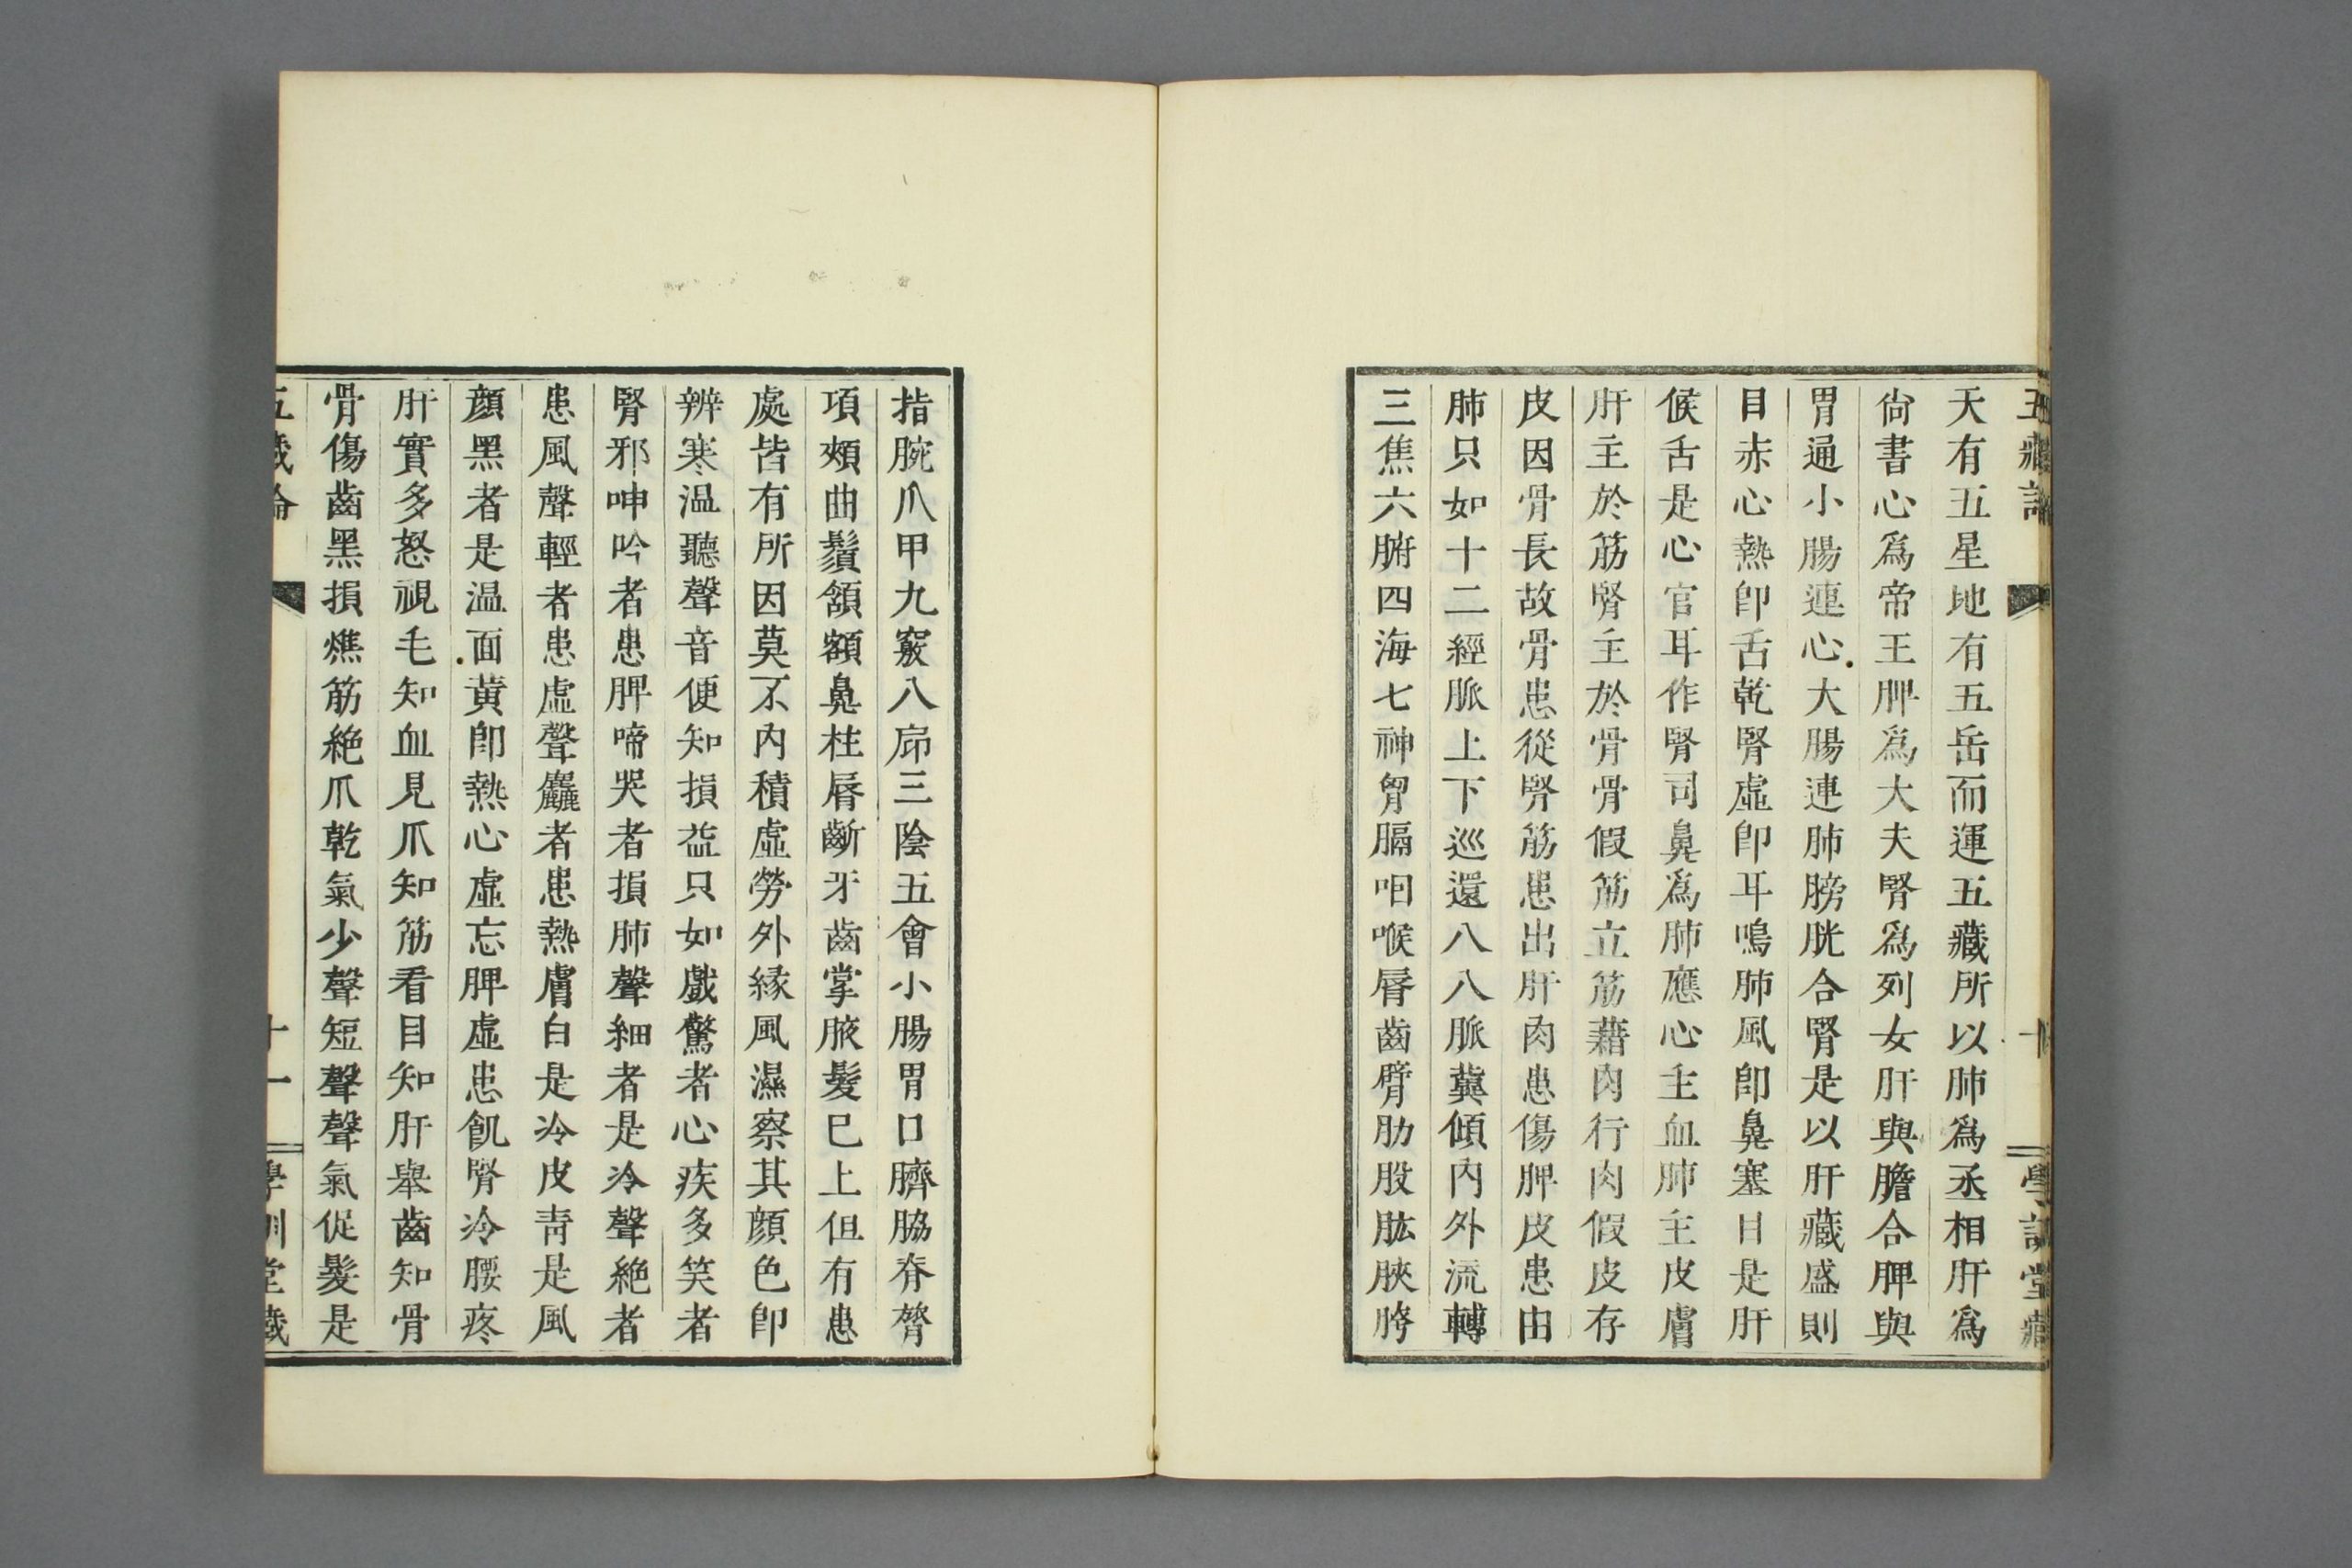 天有五星地有五岳而運五藏所以肺爲丞相肝爲
尙書心爲帝王脾爲大夫腎爲列女肝與膽合脾與
胃通小腸連心大腸連肺膀胱合腎是以肝藏盛則
目赤心熱卽舌乾腎虛卽耳鳴肺風卽鼻塞目是肝
候舌是心官耳作腎司鼻爲肺應心主血肺主皮膚
肝主於筋腎主於骨骨假筋立筋藉肉行肉假皮存
皮因骨長故骨患從腎筋患出肝肉患傷脾皮患由
肺只如十二經脈上下巡還八八脈冀傾內外流轉
三焦六腑四海七神胷膈咽喉脣齒臂肋股肱脥胯
指腕爪甲九竅八㡿三陰五會小腸胃口臍脇脊膂
項頰曲鬚頷額鼻柱脣齗牙齒掌腋髮巳上但有患
處皆有所因莫不內積虛勞外緣風濕察其顏色卽
辨寒温聽聲音便知損益只如戲驚者心疾多笑者
腎邪呻吟者患脾啼哭者損肺聲細者是冷聲絕者
患風聲輕者患虛聲麤者患熱膚白是冷皮靑是風
顏黑者是温面黄卽熱心虛忘脾虛患飢腎冷腰疼
肝實多怒視毛知血見爪知筋看目知肝舉齒知骨
骨傷齒黑損燋筋絕爪乾氣少聲短聲聲氣促髮是
五藏論 十一 學訓堂藏